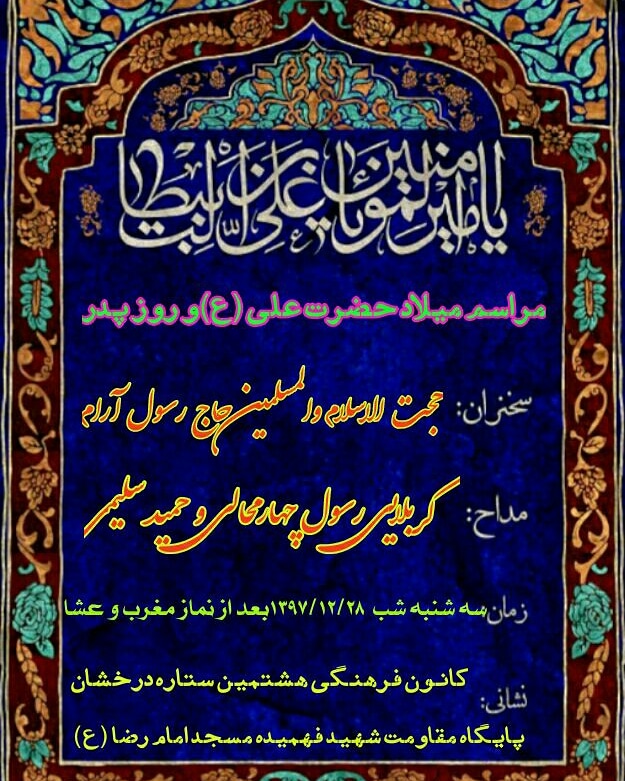 یا امیرالمؤمنین علی بن ابیطالب
مراسم میلاد حضرت علی (ع) و روز پدر
سخنران: حجت الاسلام والمسلمین حاج رسول آرام
مداح: کربلایی رسول چهارمحالی و حمید سلیمی
زمان: سه شنبه شب ۱۳۹۷/۱۲/۲۸ بعد از نماز مغرب و عشا
نشانی: کانون فرهنگی هشتمین ستاره درخشان
پایگاه مقاومت شهید فهمیده مسجد امام رضا (ع)